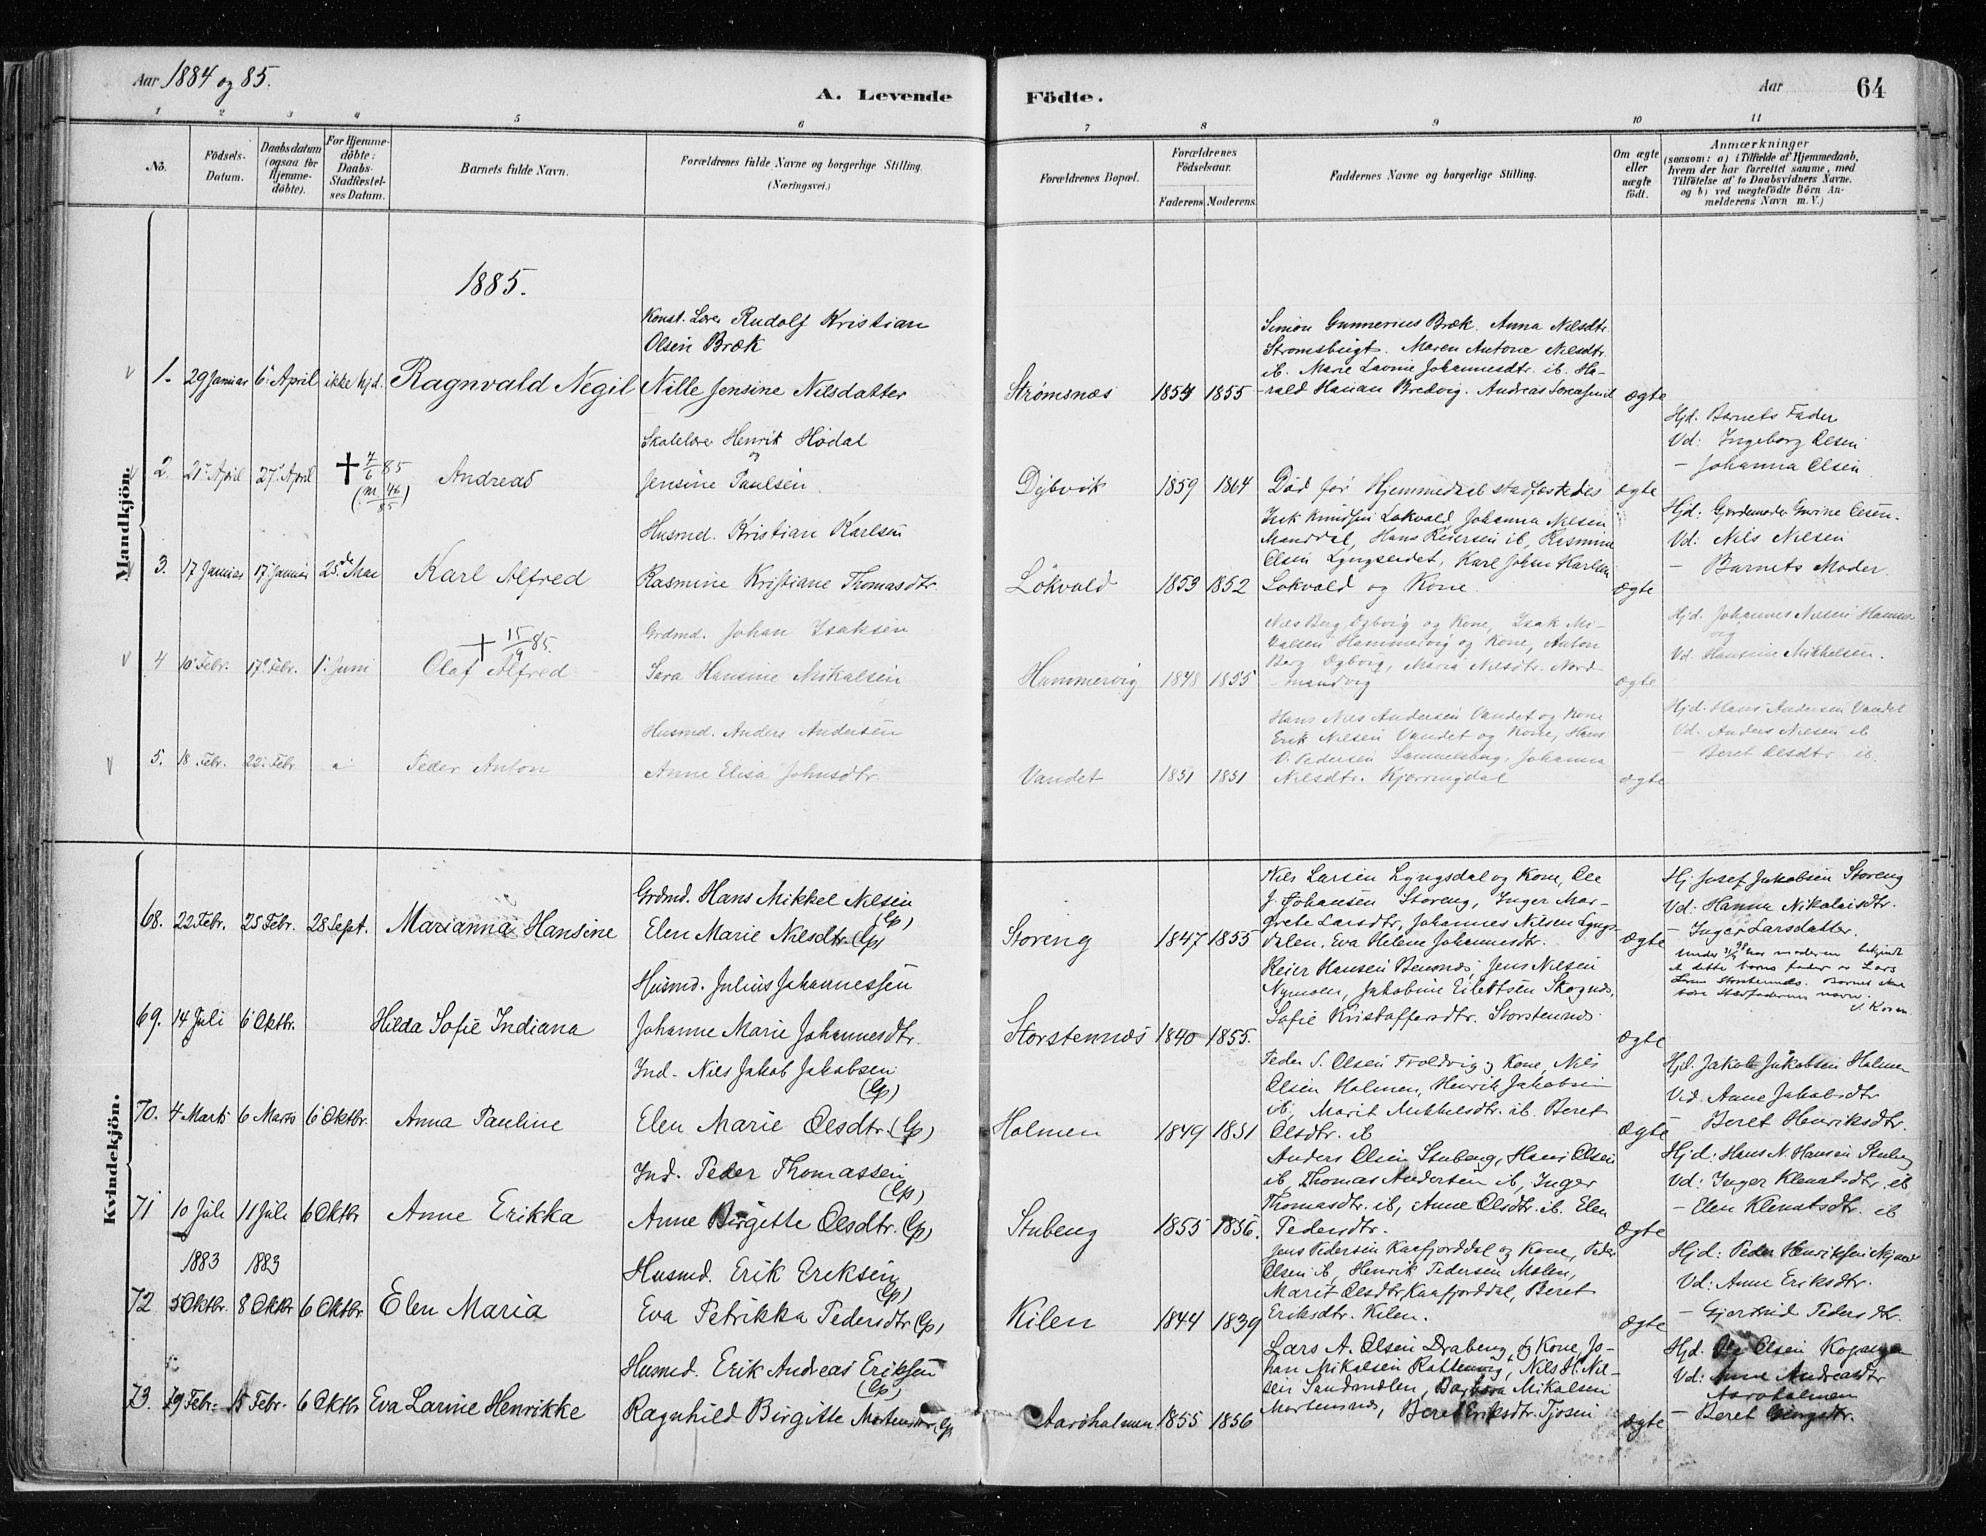 Aar 1884 og 85.
A. Levende Födte.
Aar
64
1 2 3 4 5 6 7 8 9 10 11
No.
Födsels-
Datum.
Daabsdatum
(ogsaa for
Hjemme-
döbte).
For Hjemme-
döbte:
Daabs-
Stadfæstel-
ses Datum.
Barnets fulde Navn.
Forældrenes fulde Navne og borgerlige Stilling.
(Næringsvei.)
Forældrenes Bopæl.
Forældrenes
Födselsaar.
Faderens Moderens
Faddernes Navne og borgerlige Stilling.
Om ægte
eller
uægte
födt.
Anmærkninger
(saasom: a) i Tilfælde af Hjemmedaab,
hvem der har forrettet samme, med
Tilföielse af to Daabsvidners Navne.
og b) ved uægtefödte Börn An-
melderens Navn m. V.)
Mandkjön.
1885.
1. 29 Januar 6te April ikke hjd. Ragnvald Negil
Konst. Lærer Rudolf Kristian
Olsen Bræk
Nille Jensine Nilsdatter
Strømsnæs 1854 1855
Simon Gunnerius Bræk. Anna Nilsdtr.
Stromsbugt. Maren Antone Nilsdtr.
ib. Marie Lavine Johannesdtr. ib. Ha-
rald Hanan Bredvig. Andreas
ægte
2. 21 April 27 April † 7/6 85 Andreas
Skolelærer Henrik Hødal
og
Jensine Paulsen.
Dybvik 1859 1864
Død før Hjemmedaab stadfæstedes
ægte
Hjd. Barnets Fader
Vd: Ingeborg Olsen
– Johanna Olsen
3. 17 Januar 17 Januar 25de Mai Karl Alfred
Husmd. Kristian Karlsen
Rasmine Kristiane Thomasdtr.
Løkvold 1853 1852
Isak Knudsen Lokvold, Johanna Nilsen
Manddal, Hans Reiersen ib, Rasmine
Olsen Lyngseidet, Karl Johan Karlsen
Lokvold og Kone.
ægte
Hjd: Gjordemoder Olsen.
Vd: Nils Nilsen
– Barnets Moder.
4 10 Febr. 17 Febr. 1. Juni † 15/9 85. Olaf Alfred
Grdmd. Johan Isaksen
Sara Hansine Mikalsen
Hammervig 1848 1855
Nils Berg Dybvig og Kone, Isak Mi-
kalsen Hammervig og Kone, Anton
Berg Dybvig, Maria Nilsdtr. Nord-
mandvig
ægte
Hjd. Johannes Nilsen Hammer-
vig
Vd. Hansine Mikkelsen.
5. 18 Febr. 22 Febr. Peder Anton
Husmd. Anders Andersen
Anne Elisa Johnsdtr.
Vandet 1851 1851
Hans Nils Andersen Vandet og Kone
Erik Nilsen Vandet og Kone, Hans
O. Pedersen Sammelsberg, Johanna
Nilsdtr. Kjerringdal
ægte
Hjd. Hans Andersen Vandet
Vd. Anders Nilsen ib
– Beret Olsdtr ib.
Kvindekjön.
68. 22 Febr. 25 Febr. 28 Sept. Marianna Hansine
Grdmd. Hans Mikkel Nilsen
(Lp)
Elen Marie Nilsdtr (Lp)
Storeng 1847 1855
Nils Larsen Lyngsdal og Kone, Ole
J. Johansen Storeng, Inger Mar-
grete Larsdtr, Johannes Nilsen Lyngs-
dalen. Eva Helene Johannesdtr.
ægte
Hj. Josef Jakobsen Storeng
Vd: Hanna Nikolaisdtr.
– Inger Larsdatter.
Under har moderen bekjendt
at dette barns fader er Lars
Barnet skal
bære Stedfaderens navn.
69. 14 Juli 6 Oktbr. Hilda Sofie Indiana
Husmd. Julius Johannessen
Johanne Marie Johannesdtr.
Storstennes 1840 1855.
Reier Hansen Bensnes, Jens Nilsen
Nymoen, Jakobine Eilertsen Skognes,
Sofie Kristoffersdtr. Storstennes.
ægte
70. 4 Marts 6 Marts 6 Oktbr. Anna Pauline
Ind. Nils Jakob Jakobsen
(Lp)
Elen Marie Olsdtr (Lp)
Holmen 1849 1851
Peder S. Olsen Troldvig og Kone, Nils
Olsen Holmen, Henrik Jakobsen
ib, Marit Mikkelsdtr. ib. Beret
Olsdtr. ib
ægte
Hjd. Jakob Jakobsen Holmen
Vid. Anne Jakobsdtr
– Beret Henriksdtr.
71 10 Juli 11 Juli 6 Oktbr Anne Erikka
Ind. Peder Thomassen
(Lp)
Anne Birgitte Olsdtr. (Lp)
Stubeng 1855 1856.
Anders Olsen Stubeng, Hans Olsen
ib, Thomas Andersen ib, Inger
Thomasdtr. ib, Anne Olsdtr. ib. Elen
Pedersdtr.
ægte
Hjd: Hans N. Hansen Stubeng
Vd: Inger Klemetsdtr. ib
– Elen Klemetsdtr. ib
72 1883 5 Oktbr. 1883 8 Oktbr 6 Oktbr Elen Maria
Husmd. Erik Eriksen
(Lp)
Eva Petrikka Pedersdtr (Lp)
Kilen 1844 1839
Jens Pedersen Kaafjorddal og Kone, Peder
Olsen ib, Henrik Pedersen Molen,
Marit Olsdtr Kaafjorddal, Beret
Eriksdtr. Kilen.
ægte
Hjd: Peder Henriksen
Vd: Anne Eriksdtr.
– Gjertrud Pedersdtr.
73. 19 Febr. 15 Febr. 6 Oktbr Eva Larine Henrikke
Husmd. Erik Andreas Eriksen
(Lp)
Ragnhild Birgitte Mortensdtr (Lp)
Aaroholmen 1855 1856
Lars A. Olsen Drabeng og Kone, Jo-
han Mikalsen Rottenvig, Nils H. Nil-
sen Sandmælen, Barbara Mikalsen
Mortensnes, Beret Eriksdtr. Tjosen
ægte
Hjd. Ole Olsen Kopangen
Vd: Anne Andreasdtr
Aaroholmen
– Beret